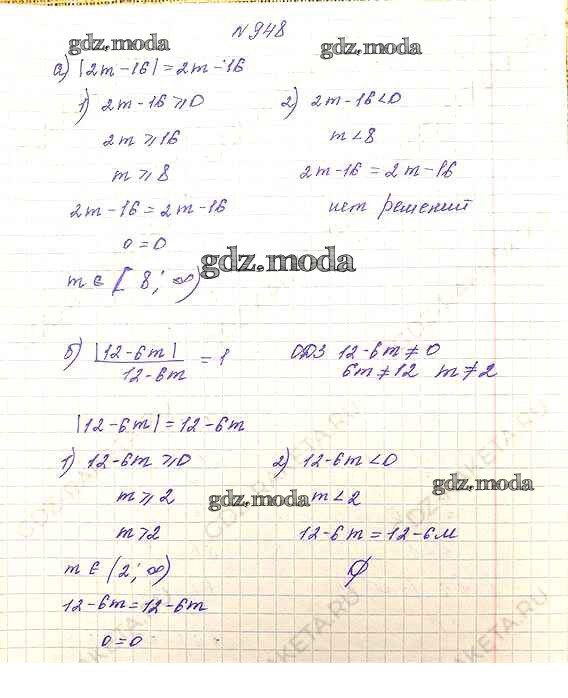 N 948
gdz.moda gdz.moda
а) |2m-16| = 2m-16
1) 2m-16 ⩾ 0 2) 2m-16 < 0
2m ⩾ 16 m < 8
m ⩾ 8 2m-16 = 2m-16
2m-16 = 2m-16 нет решений
0 = 0
gdz.moda
m ∈ [8; ∞)
б) |12-6m| / 12-6m = 1 ОДЗ 12-6m ≠ 0
6m ≠ 12 m ≠ 2
|12-6m| = 12-6m
1) 12-6m ⩾ 0 2) 12-6m < 0
gdz.moda
m ⩾ 2 gdz.moda m < 2
m > 2 12-6m = 12-6м
m ∈ (2; ∞) ∅
12-6m = 12-6m
0 = 0